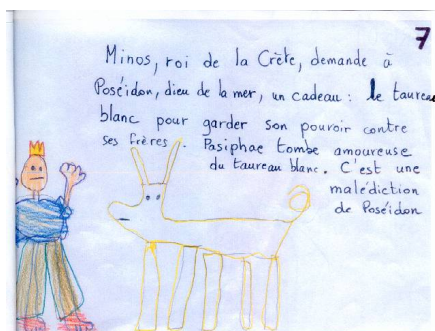 7
Minos, roi de la Crète, demande à
Poséidon, dieu de la mer, un cadeau : le taureau
blanc pour garder son pouvoir contre
ses frères. Pasiphae tombe amoureuse
du taureau blanc. C'est une
malédiction
de Poséidon